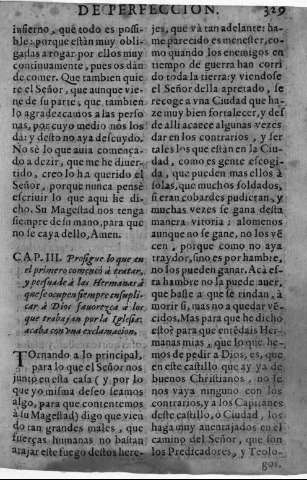 DE PERFECCION. 329
infierno, que todo es possi-
ble: porque están muy obli-
gadas a rogar por ellos muy
continuamente, pues os dan
de comer. Que tambien quie
re el Señor, que aunque vie-
ne de su parte, que tambien
lo agradezcamos a las perso
nas, por cuyo medio nos los
da: y desto no aya descuydo.
No sé lo que auia comença-
do a dezir, que me he diuer-
tido, creo lo ha querido el
Señor, porque nunca pensè
escriuir lo que aqui he di-
cho. Su Magestad nos tenga
siempre de su mano, para que
no se caya dello, Amen.
CAP. III. Prosigue lo que en
el primero comencò à tratar,
y persuade à las Hermanas à
que se ocupen siempre en supli-
car à Dios fauorezca à los
que trabajan por la Iglesia:
acaba con vna exclamacion.
TOrnando a lo principal,
para lo que el Señor nos
juntò en esta casa (y por lo
que yo mismo deseo seamos
algo, para que contentemos
à su Magestad) digo que vien
do tan grandes males, que
fuerças humanas no bastan
a atajar este fuego destos here-
jes, que và tan adelante: ha-
me parecido es menester, co-
mo quando los enemigos en
tiempo de guerra han corri
do toda la tierra: y viendose
el Señor della apretado, se
recoge a vna Ciudad que ha-
ze muy bien fortalecer, y des
de alli acaece algunas vezes
dar en los contrarios, y ser
tales los que están en la Ciu-
dad, como es gente escogi-
da, que pueden mas ellos à
solas, que muchos soldados,
si eran cobardes pudieran, y
muchas vezes se gana desta
manera vitoria: alomenos
aunque no se gane, no los vẽ
cen, porque como no aya
traydor, sino es por hambre,
no los pueden ganar. Acà es-
ta hambre no la puede auer,
que baste a que se rindan, à
morir si, mas no a quedar vẽ-
cidos. Mas para que he dicho
esto? para que entẽdais Her-
manas mias, que lo que he-
mos de pedir a Dios, es, que
en este castillo que ay ya de
buenos Christianos, no se
nos vaya ninguno con los
contrarios, y a los Capitanes
deste castillo, o Ciudad, los
haga muy auentajados en el
camino del Señor, que son
los Predicadores, y Teolo-
gos.